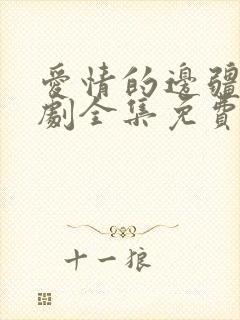 愛情的邊疆
劇全集免費
十一狼